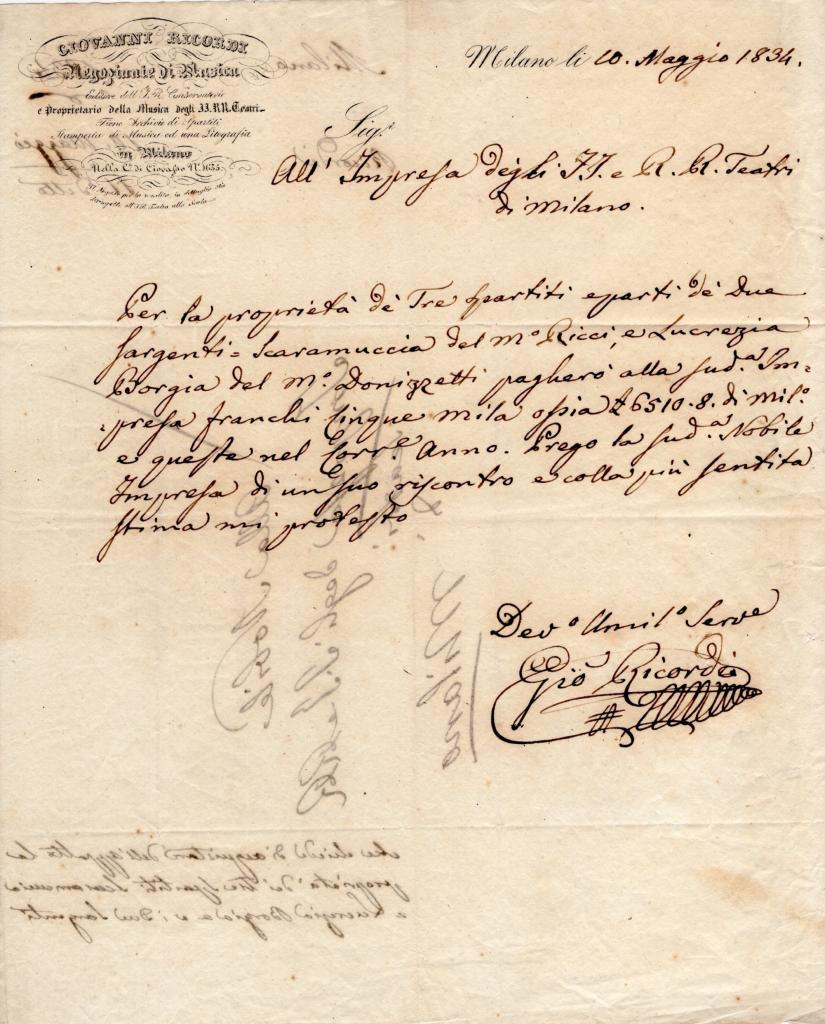 GIOVANNI RICORDI
Negoziante di Musica
Editore dell' I. R. Conservatorio
e Proprietario della Musica degli II. RR. Teatri
Tiene Archivio di Spartiti
Stamperia di Musica ed una Litografia
in Milano
Nella C.a di Ciovasso N.o 1635.
Milano li 10. Maggio 1834.
Sig.r
All' Impresa degli I. I. e R. R. Teatri
di Milano.
Per la proprietà de' Tre spartiti e parti de' Due
Sargenti = Scaramuccia del M.o Ricci, e Lucrezia
Borgia del M.o Donizzetti pagherò alla sud.a Im=
=presa franchi Cinque mila ossia £ 6510.8. di Mil.o
e queste nel Corr.e Anno. Prego la sud.a Nobile
Impresa di un suo riscontro e colla più sentita
stima mi protesto
Dev.o Umil.o Serv.e
Gio Ricordi
che chiede d'acquistare dall'appalto la
proprietà dei tre spartiti Scaramuccia
e Lucrezia Borgia e i due Sargenti